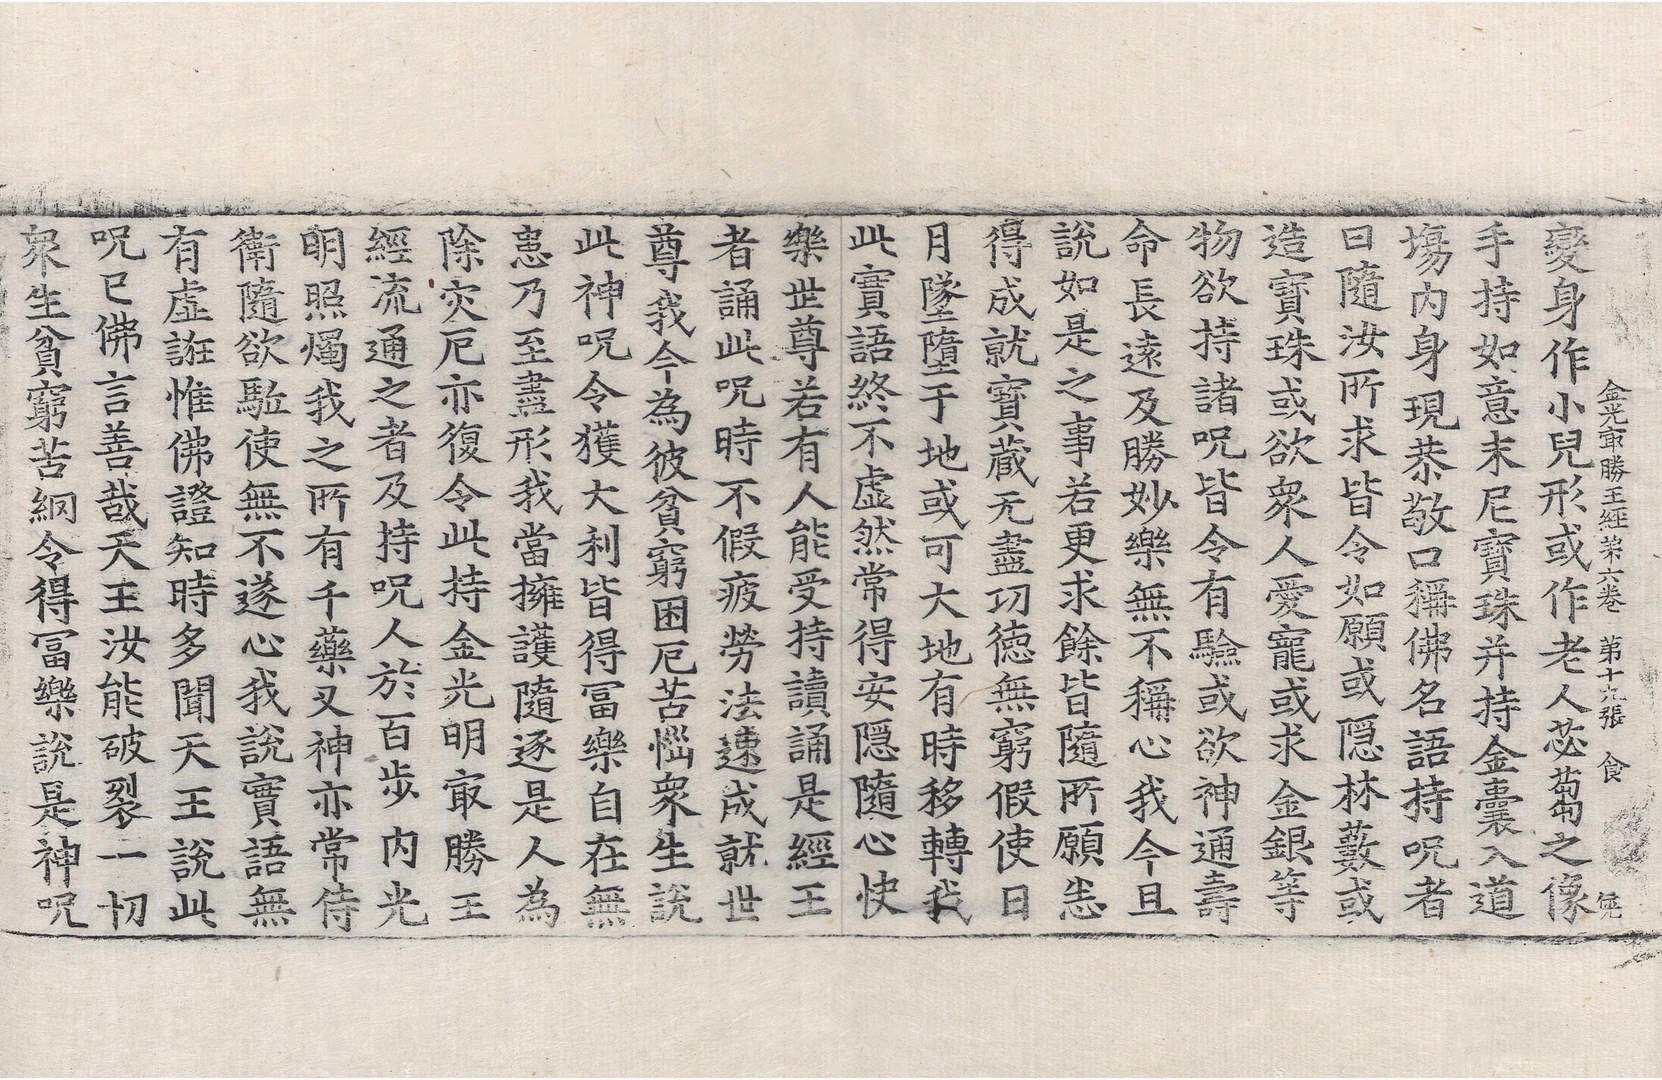 金光㝡勝王經第六卷 第十九張 食
變身作小兒形或作老人苾蒭之像
手持如意末尼寶珠并持金囊入道
場内身現恭敬口稱佛名語持呪者
曰隨汝所求皆令如願或隠林藪或
造寶珠或欲衆人愛寵或求金銀等
物欲持諸呪皆令有驗或欲神通壽
命長遠及勝妙樂無不稱心我今且
說如是之事若更求餘皆隨所願悉
得成就寶藏无盡功徳無窮假使日
月墜墮于地或可大地有時移轉我
此實語終不虚然常得安隠隨心快
樂世尊若有人能受持讀誦是經王
者誦此呪時不假疲勞法速成就世
尊我今為彼貧窮困厄苦惱衆生說
此神呪令獲大利皆得冨樂自在無
患乃至盡形我當擁護隨逐是人為
除灾厄亦復令此持金光明㝡勝王
經流通之者及持呪人於百步内光
明照燭我之所有千藥叉神亦常侍
衛隨欲駈使無不遂心我說實語無
有虚誑惟佛證知時多聞天王說此
呪已佛言善哉天王汝能破裂一切
衆生貧窮苦網令得冨樂說是神呪